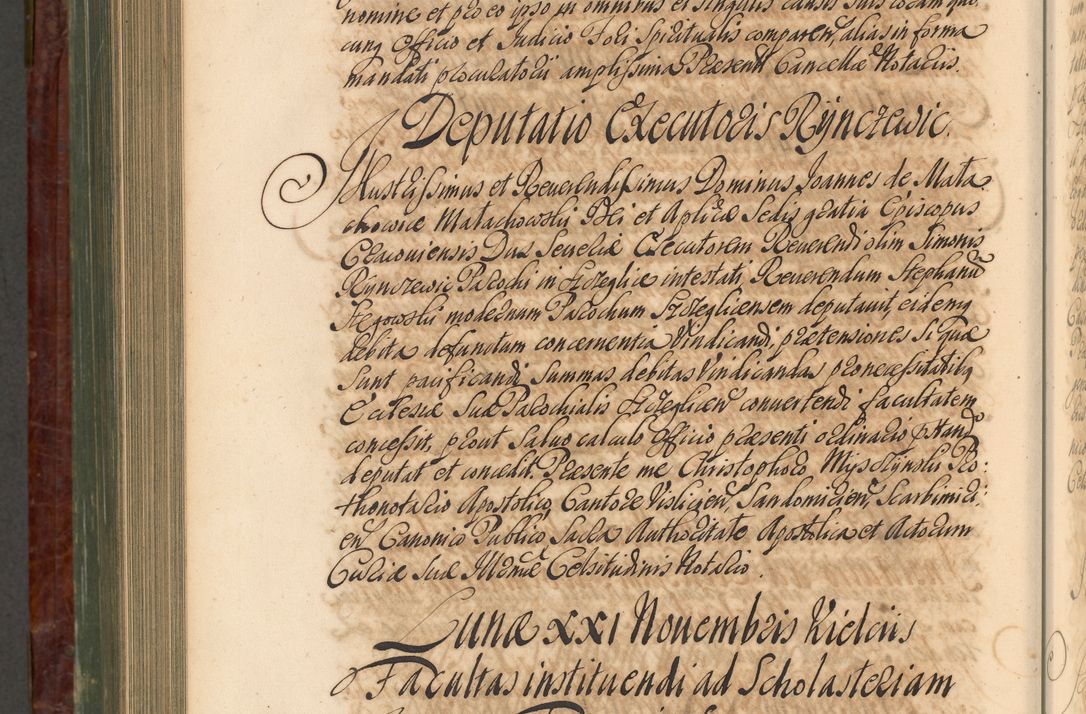 nomine et pro eo ipso in omnibus et singulis causis suis coram quo
cunq Officio et Judicio Fori Spiritualis comparen, alias in forma
mandati procuratorii amplissima Presentt Cancellæ Notariis.
Deputatio Executoris Rÿnczewic.
Illustrissimus et Reuerendissimus Dominus Joannes de Mała
chowice Małachowski Dei et Aplicæ Sedis gratia Episcopus
Cracouiensis Dux Seueriæ Executorem Reuerendi olim Simonis
Rÿnczewic Parochi in Szczeglice intestati, Reuerendum Stephanū
Stegowski modernum Parochum Szczeglicensem deputauit, eidemq
debita defunctum concernentia Vindicandi, prætensiones si quæ
sunt pacificandi, Summas debitas Vindicandas pro necessitatibq
Ecclesiæ Suæ Parochialis Szczeglicen conuertendi facultatem
concessit, prout saluo calculo Officio præsenti ordinario pstando
deputat et concedit. Præsente me Christophoro Myszczÿnski Pro:
thonotario Apostolico, Cantore Vislicien, Sandomirien, Scarbimiri:
en Canonico Publico Sacra Authoritate Apostolica et Actorum
Curiæ Suæ Illmæ Celsitudinis Notario.
Lunæ XXI Nouembris Kielciis
Facultas instituendi ad Scholasteriam